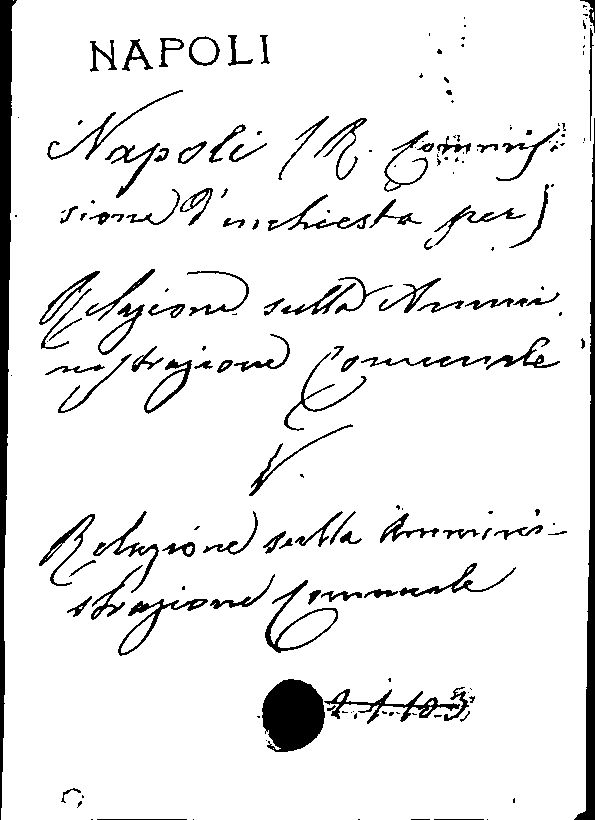 NAPOLI
Napoli (R. Commis-
sione d'inchiesta per)
Relazione sulla Ammi
nistrazione Comunale
V.
Relazione sulla Amminis-
strazione Comunale